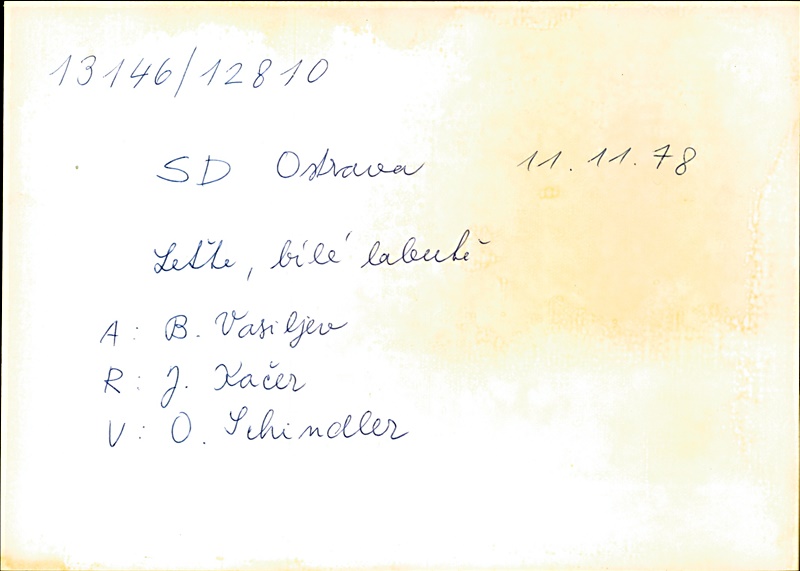 13146/12810
SD Ostrava 11.11.78
Leťte, bílé labutě
A: B. Vasiljev
R: J. Kačer
V: O. Schindler